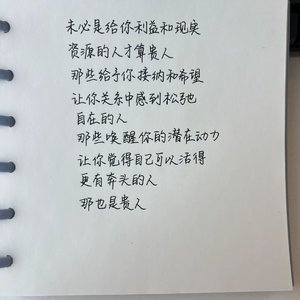 未必是给你利益和现实
资源的人才算贵人
那些给予你接纳和希望
让你关系中感到松弛
自在的人
那些唤醒你的潜在动力
让你觉得自己可以活得
更有奔头的人
那也是贵人